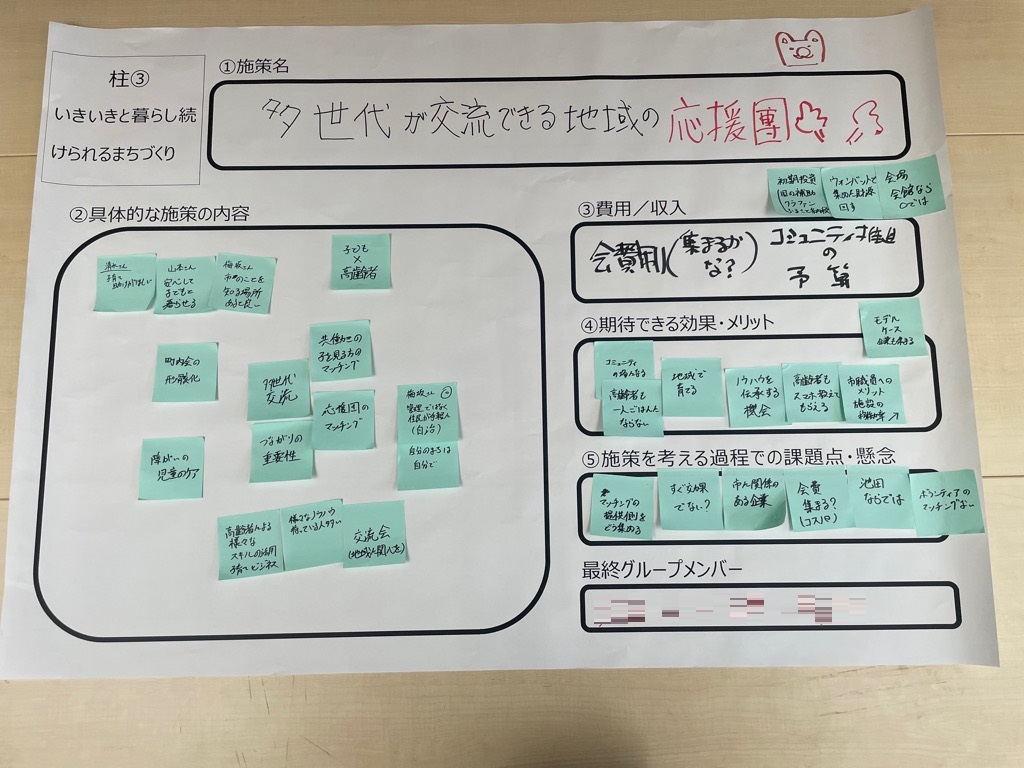 柱③
いきいきと暮らし続
けられるまちづくり
①施策名
多世代が交流できる地域の応援團
②具体的な施策の内容
清水さん
子育て
助けがほしい
山本さん
安心して
子どもと
暮らせる
梅坂さん
市のことを
知る場所
あると良い
子ども
×
高齢者
町内会の
形骸化
多世代
交流
共働きの
子を見る方の
マッチング
つながりの
重要性
応援団の
マッチング
管理ではなく
住民が主体
(自治)
自分のまちは
自分で
障がいの
児童のケア
高齢者による
様々な
スキルの活用
子育てビジネス
様々なノウハウ
持っている人多い
交流会
(地域と関わる)
③費用／収入
初期投資
国の補助
ウォンバットで
集めた財源
回す
会場
会館なら
0では
会費用(集まるか
な?)
コミュニティ推進
の
予算
④期待できる効果・メリット
モデル
ケース
コミュニティ
高齢者も
一人ぼっち
ならない
地域で
育てる
ノウハウを
伝承する
機会
高齢者も
スマホ教えて
もらえる
市職員への
メリット
施設の
⑤施策を考える過程での課題点・懸念
マッチングの
提供側を
どう集める
すぐ効果
でない?
市と関係の
ある企業
会費
集まる?
(コスパ)
池田
ならでは
ボランティアの
マッチングない
最終グループメンバー